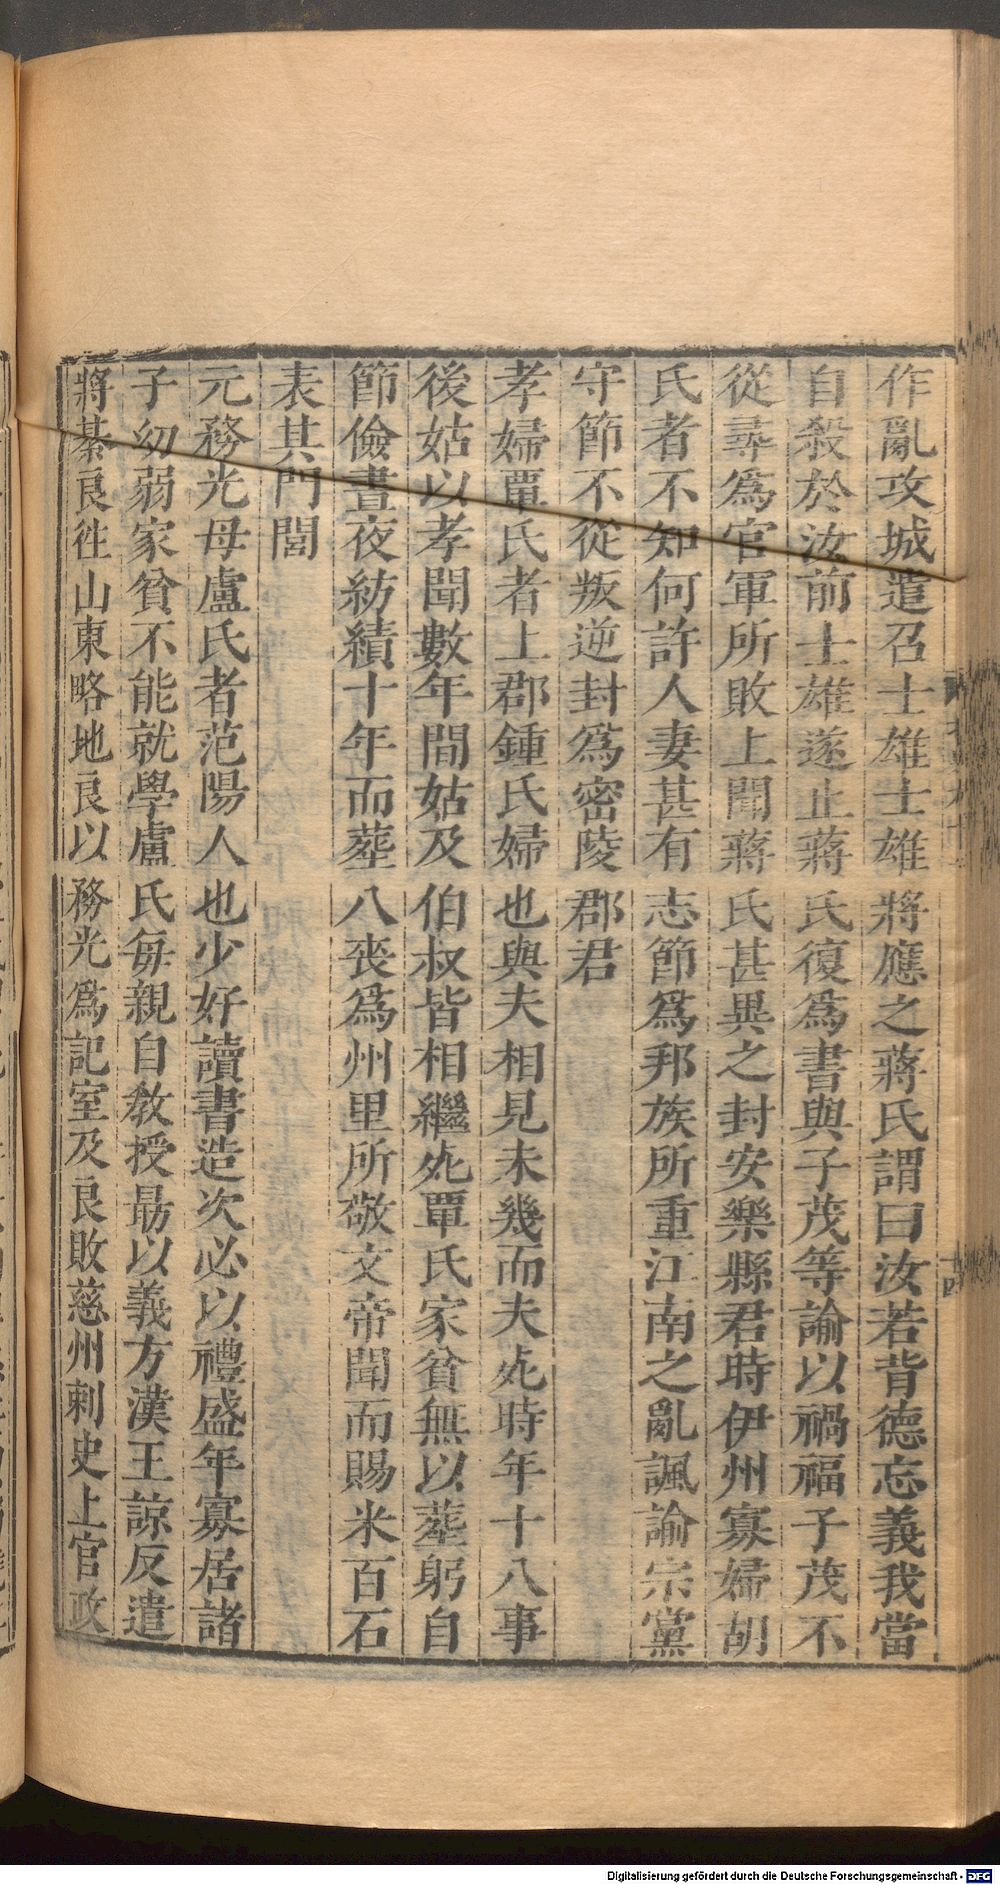 作亂攻城遣召士雄士雄將應之蔣氏謂曰汝若背德忘義我當
自殺於汝前士雄遂止蔣氏復爲書與子茂等諭以禍福子茂不
從尋爲官軍所敗上聞蔣氏甚異之封安樂縣君時伊州寡婦胡
氏者不知何許人妻甚有志節爲邦族所重江南之亂諷諭宗黨
守節不從叛逆封爲密陵郡君
孝婦覃氏者上郡鍾氏婦也與夫相見未幾而夫死時年十八事
後姑以孝聞數年間姑及伯叔皆相繼死覃氏家貧無以葬躬自
節儉晝夜紡績十年而葬八喪爲州里所敬文帝聞而賜米百石
表其門閭
元務光母盧氏者范陽人也少好讀書造次必以禮盛年寡居諸
子幼弱家貧不能就學盧氏每親自教授最以義方漢王諒反遣
將綦良往山東略地良以務光爲記室及良敗慈州刺史上官政
Digitalisierung gefördert durch die Deutsche Forschungsgemeinschaft - DFG